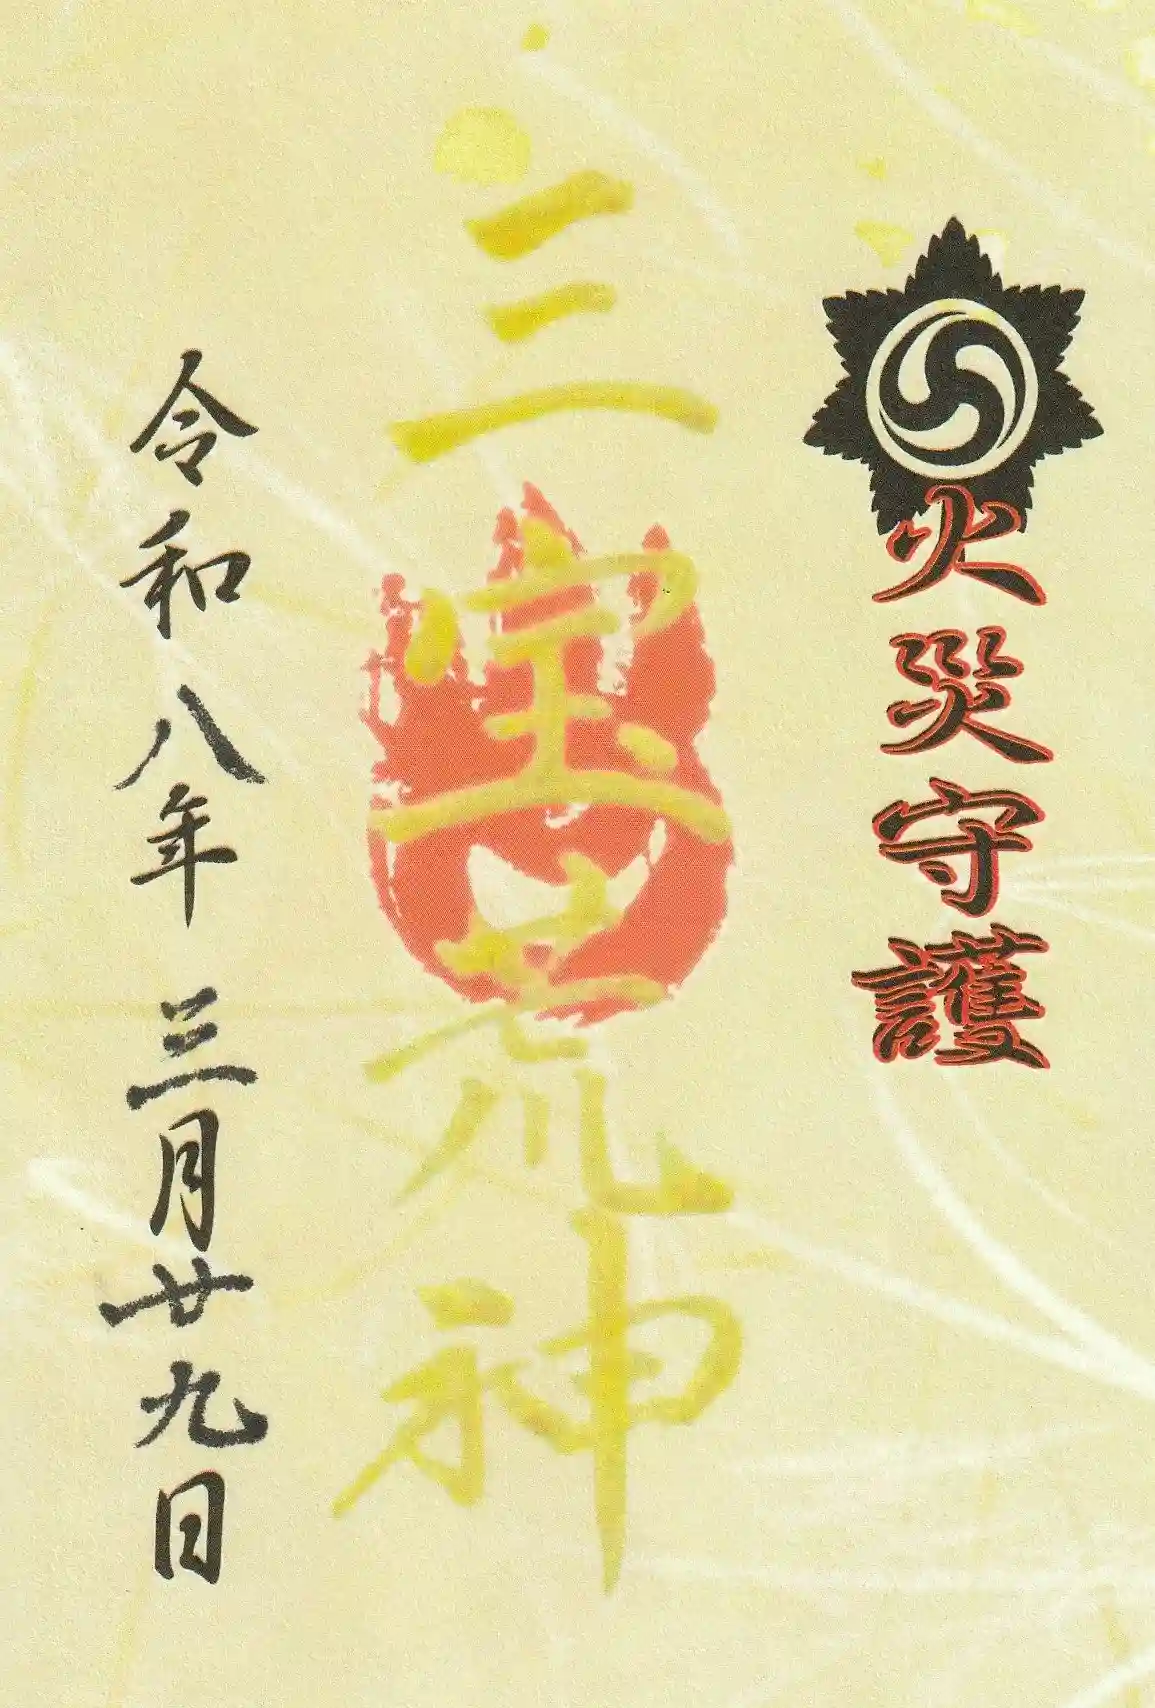 火災守護
三宝荒神
令和八年 三月廿九日